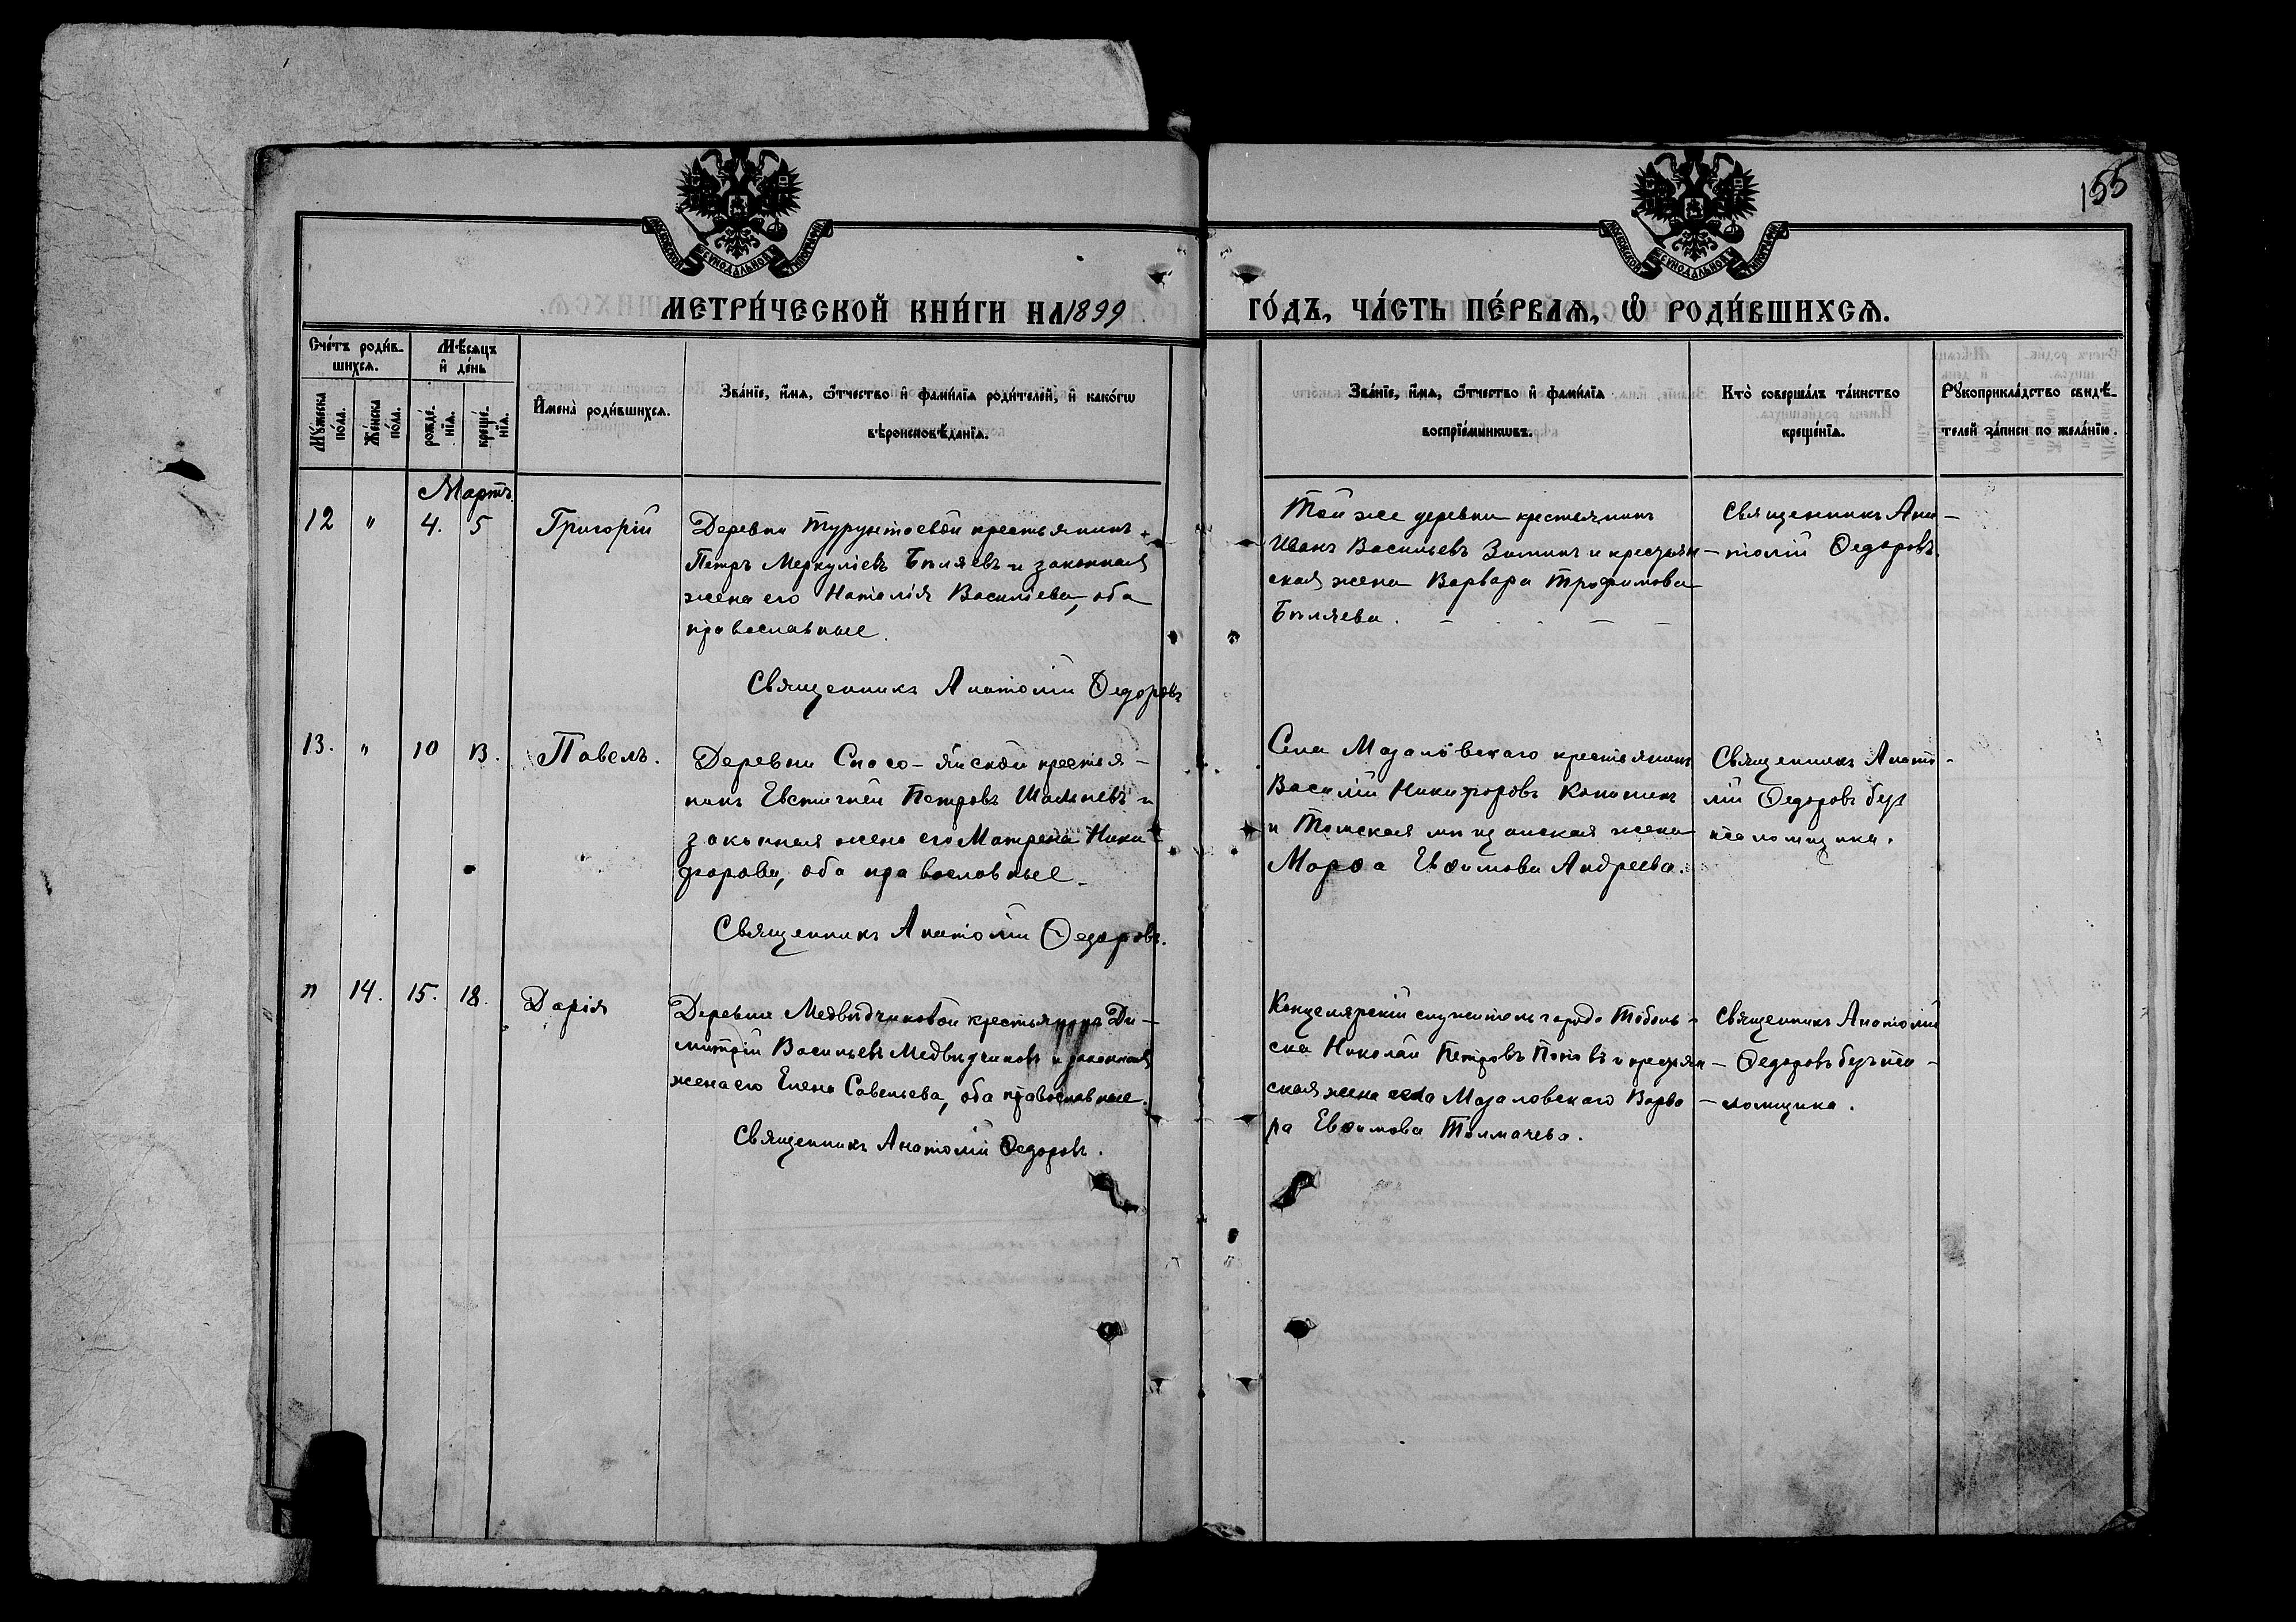 155
МОСКОВСКОЙ СѴНОДАЛЬНОЙ ТИПОГРАФІИ
МОСКОВСКОЙ СѴНОДАЛЬНОЙ ТИПОГРАФІИ
МЕТРИ́ЧЕСКОЙ КНИ́ГИ НА 1899
ГО́ДЪ, ЧА́СТЬ ПЕ́РВАѦ, Ѡ҆ РОДИ́ВШИХСѦ.
Сче́тъ роди́в-
шихсѧ.
Мꙋ́жеска
по́ла.
Же́нска
по́ла.
Мѣ́сѧцъ
и҆ де́нь
рожде́-
нїѧ.
креще́-
нїѧ.
И҆мена̀ роди́вшихсѧ.
Зва́нїе, и҆́мѧ, ѻ҆́тчество и҆ фами́лїѧ роди́телей, и҆ како́гѡ
вѣроисповѣ́данїѧ.
Зва́нїе, и҆́мѧ, ѻ҆́тчество и҆ фами́лїѧ
воспрїе́мникѡвъ.
Кто̀ соверша́лъ та́инство
креще́нїѧ.
Рꙋкоприкла́дство свидѣ́-
телей за́писи по жела́нїю.
Мартъ.
12 " 4. 5 Григорій
Деревни Турунтаевой крестьянинъ
Петръ Меркуліевъ Бѣляевъ и законная
жена его Наталія Василіева, оба
православные.
Священникъ Анатолій Ѳедоровъ
Той же деревни крестьянинъ
Иванъ Васильевъ Зиминъ и крестьян-
ская жена Варвара Трофимова
Бѣляева.
Священникъ Ана-
толій Ѳедоровъ.
13. " 10 13. Павелъ.
Деревни Спасо-Яйской крестья-
нинъ Евстигней Петровъ и
законная жена его Матрена Ники-
форова, оба православные.
Священникъ Анатолій Ѳедоровъ.
Села Мазаловскаго крестьянинъ
Василій Никифоровъ
и Томская мѣщанская жена
Марѳа Евѳимова Андреева.
Священникъ Анато-
лій Ѳедоровъ безъ
псаломщика.
" 14. 15. 18. Дарія
Деревни Медвѣдчиковой крестьянинъ Ди-
митрій Васильевъ Медвѣдчиковъ и законная
жена его Елена Савельева, оба православные.
Священникъ Анатолій Ѳедоровъ.
Канцелярскій служитель города Тоболь-
ска Николай Петровъ Поповъ и крестьян-
ская жена села Мазаловскаго Варва-
ра Евѳимова Толмачева.
Священникъ Анатолій
Ѳедоровъ безъ пса-
ломщика.